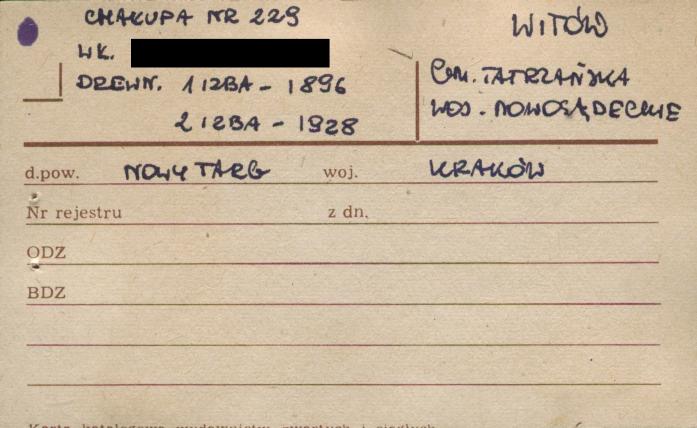 CHAŁUPA NR 229
WŁ.
DREWN. 1 IZBA - 1896
2 IZBA - 1928
WITÓW
GM. TATRZAŃSKA
WOJ. NOWOSĄDECKIE
d.pow. NOWY TARG woj. KRAKÓW
Nr rejestru z dn.
ODZ
BDZ